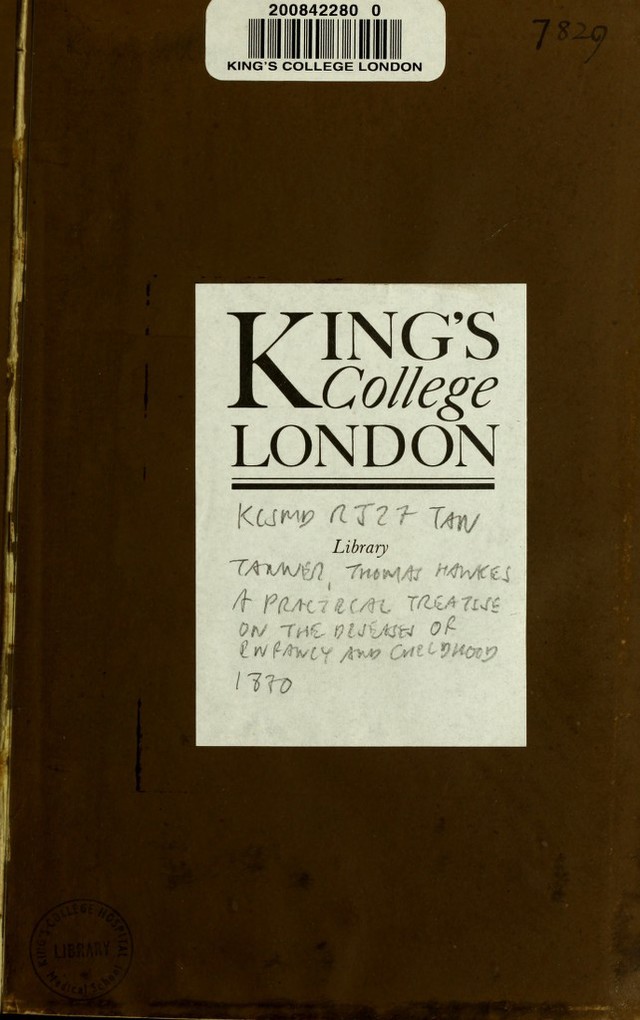 200842280 0
KING'S COLLEGE LONDON
7829
KING'S
College
LONDON
KCSMD RJ27 TAN
Library
TANNER, THOMAS HAWKES
A PRACTICAL TREATISE
ON THE DISEASES OF
INFANCY AND CHILDHOOD
1870
KING'S COLLEGE HOSPITAL
LIBRARY
Medical School